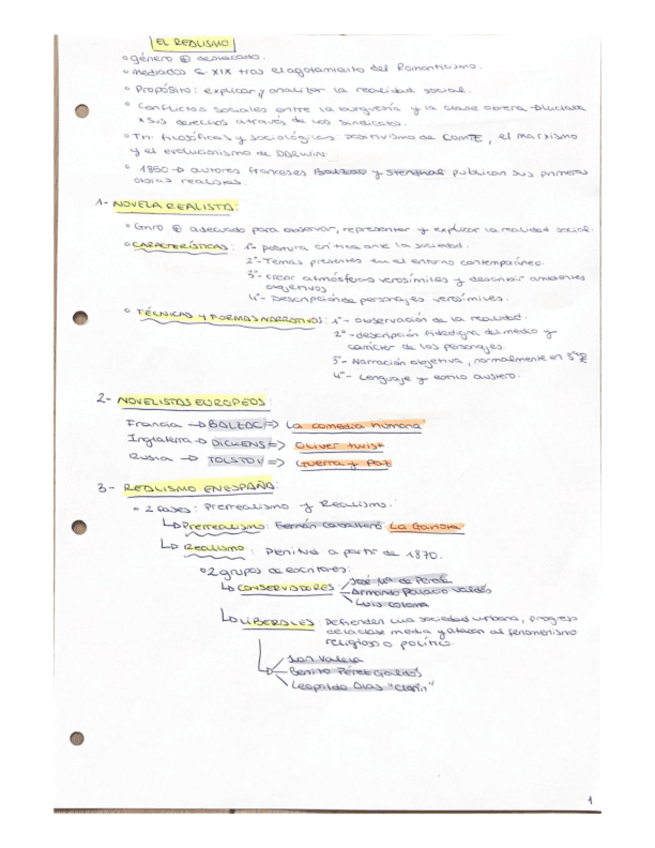 EL REALISMO
° género ⊕ destacado.
° mediados S. XIX tras el agotamiento del Romanticismo.
° Propósito: explicar y analizar la realidad social.
° Conflictos sociales entre la burguesía y la clase obrera → luchaba
x sus derechos a través de los sindicatos.
° Tn. filosóficas y sociológicas: positivismo de COMTE, el marxismo
y el evolucionismo de DARWIN.
° 1850 → autores franceses Balzac y Stendhal publican sus primeras
obras realistas.
1- NOVELA REALISTA:
° Gnro ⊕ adecuado para observar, representar y explicar la realidad social.
° CARACTERÍSTICAS: 1º- postura crítica ante la sociedad.
2º- Temas presentes en el entorno contemporáneo.
3º- Crear atmósferas verosímiles y describir ambientes
objetivos.
4º- Descripción de personajes verosímiles.
° TÉCNICAS Y FORMAS NARRATIVAS: 1º- observación de la realidad.
2º- descripción fidedigna del medio y
carácter de los personajes.
3º- Narración objetiva, normalmente en 3ª
4º- Lenguaje y estilo austero.
2- NOVELISTAS EUROPEOS:
Francia → BALZAC => La comedia humana
Inglaterra → DICKENS => Oliver Twist
Rusia → TOLSTOY => Guerra y Paz
3- REALISMO EN ESPAÑA:
° 2 fases: Prerrealismo y Realismo.
↳ Prerrealismo: Fernán Caballero La Gaviota
↳ Realismo: Plenitud a partir de 1870.
° 2 grupos de escritores:
↳ CONSERVADORES: José Mª de Pereda
Armando Palacio Valdés
Luis Coloma
↳ LIBERALES: Defienden una sociedad urbana, progreso
de la clase media y atacan al fenomenismo
religioso o político.
Juan Valera
Benito Pérez Galdós
Leopoldo Alas "Clarín"
1